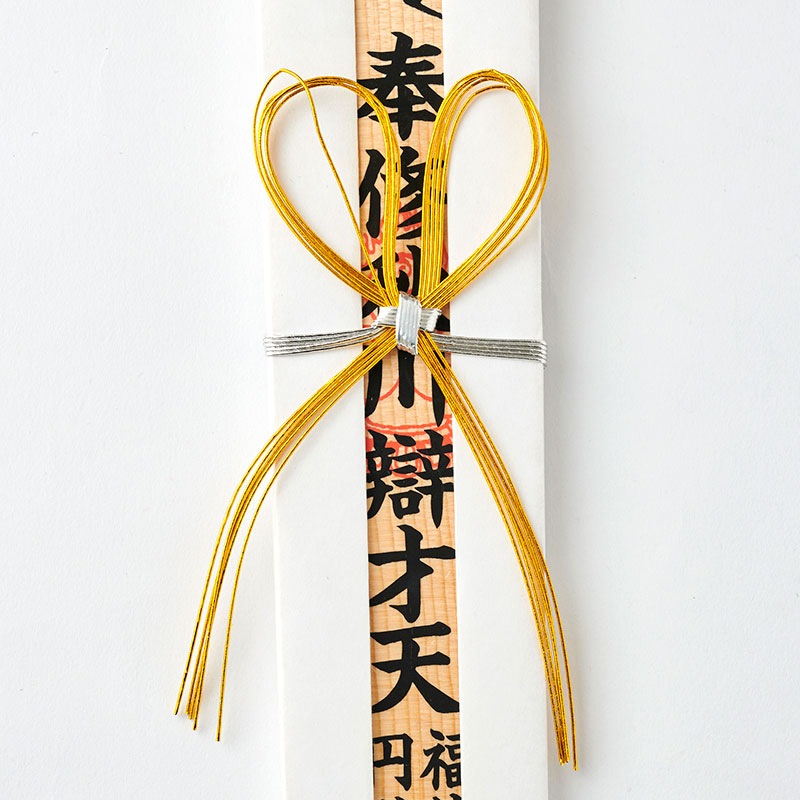 奉修川辯才天
福
円